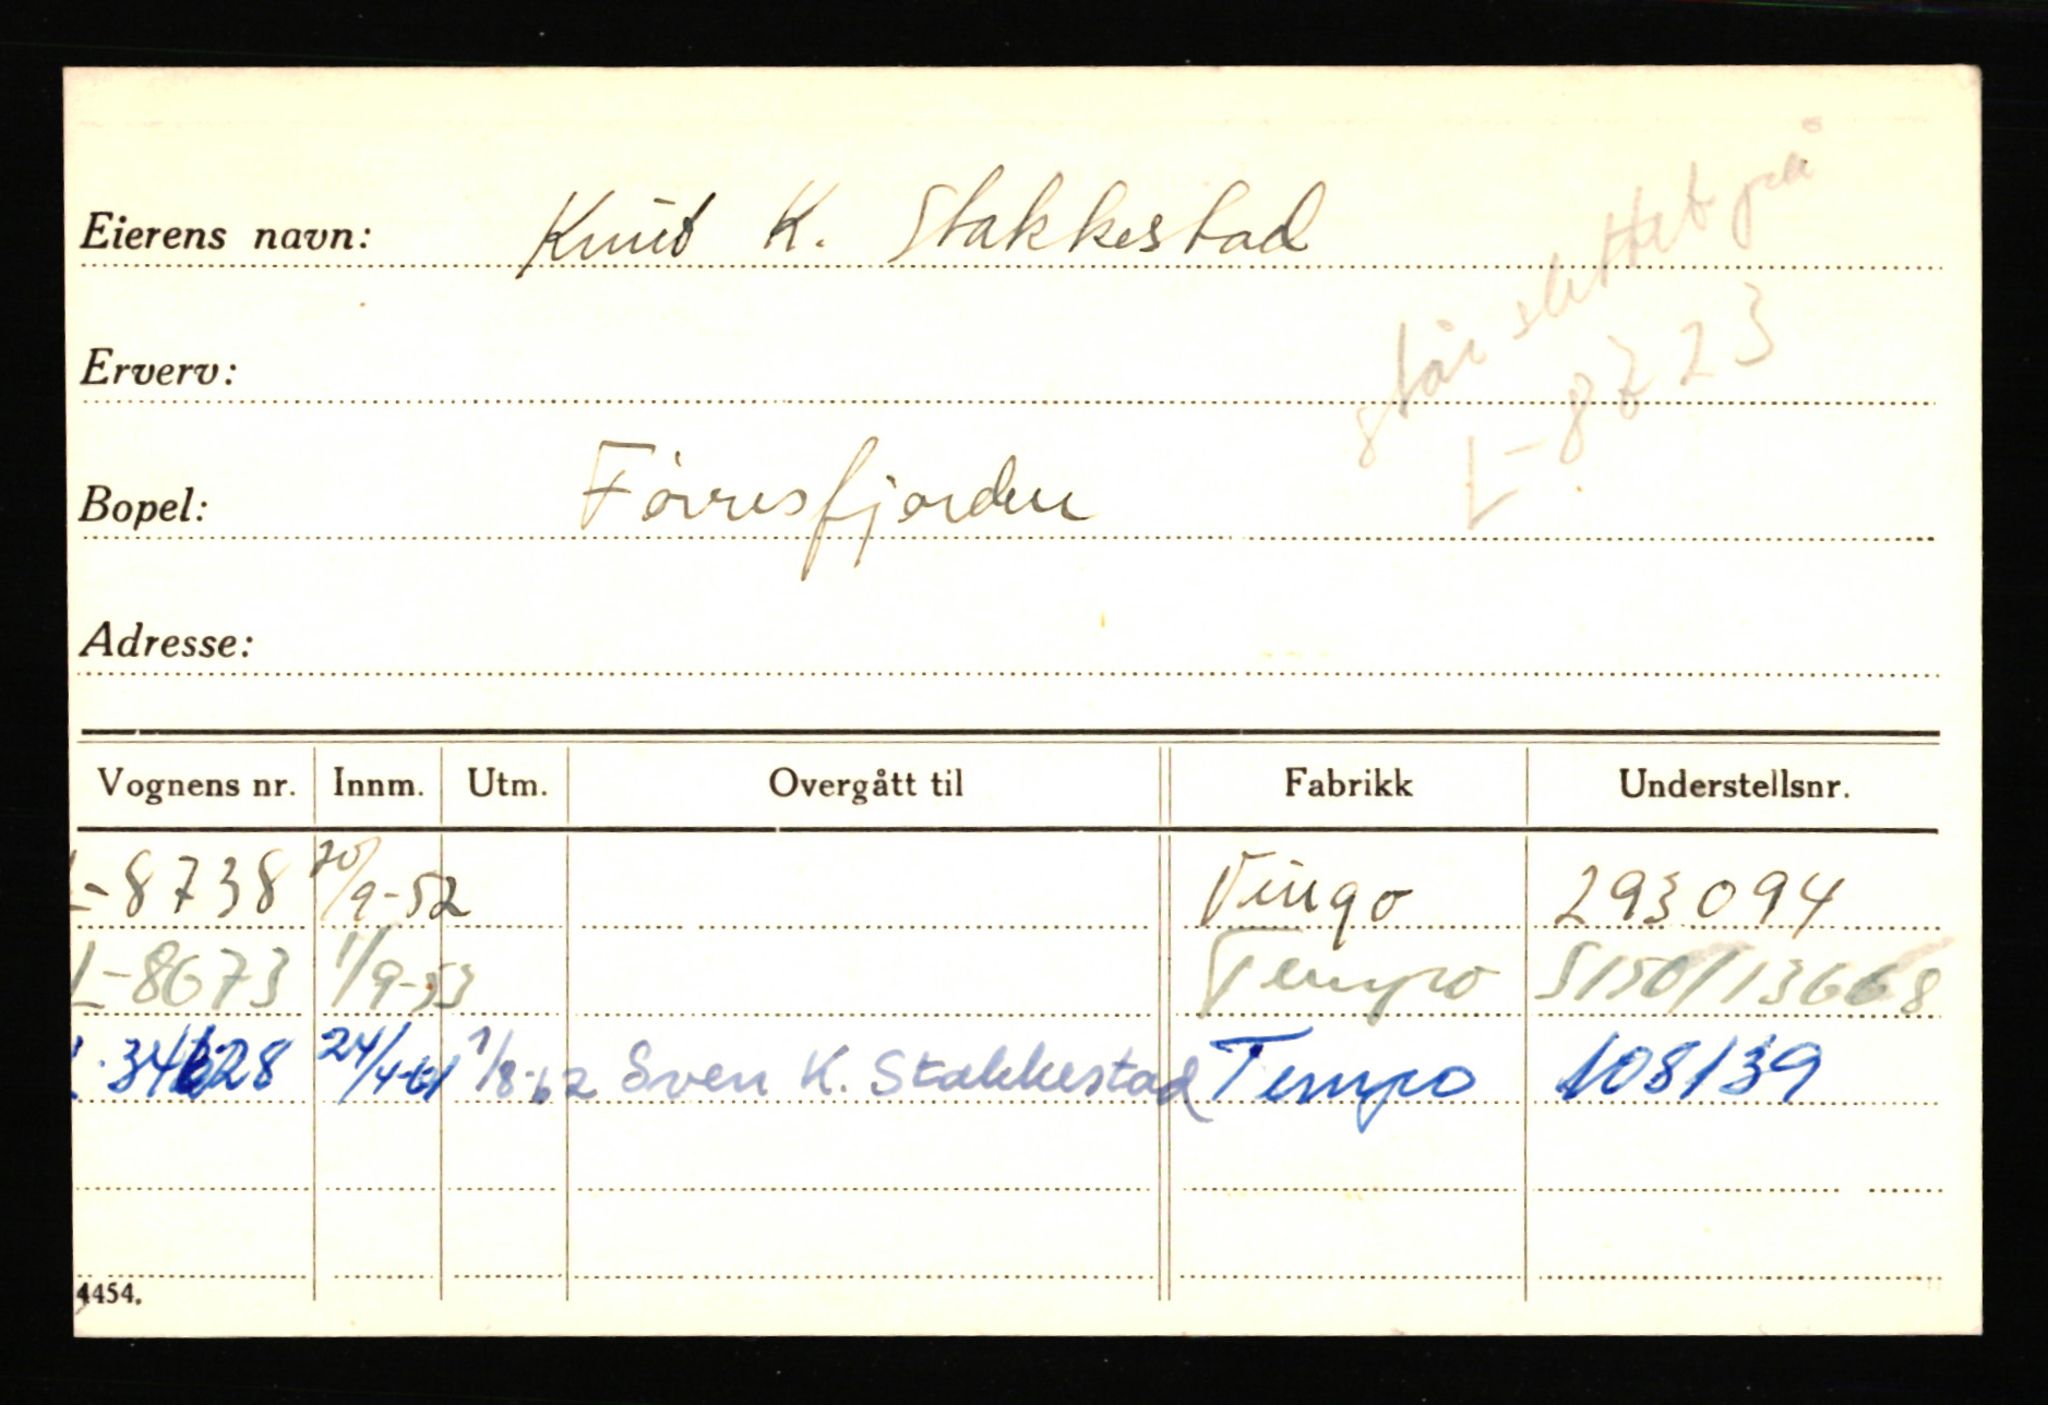 Eierens navn: Knut K. Stakkestad
står slettet på
L-8723
Erverv:
Bopel: Førresfjorden
Adresse:
Vognens nr. Innm. Utm. Overgått til Fabrikk Understellsnr.
L-8738 20/9-52 Vinqo 293094
L-8673 1/9-53 Tempo S150/13668
L-34628 24/4-61 1/8-62 Sven K. Stakkestad Tempo 108139
4454.